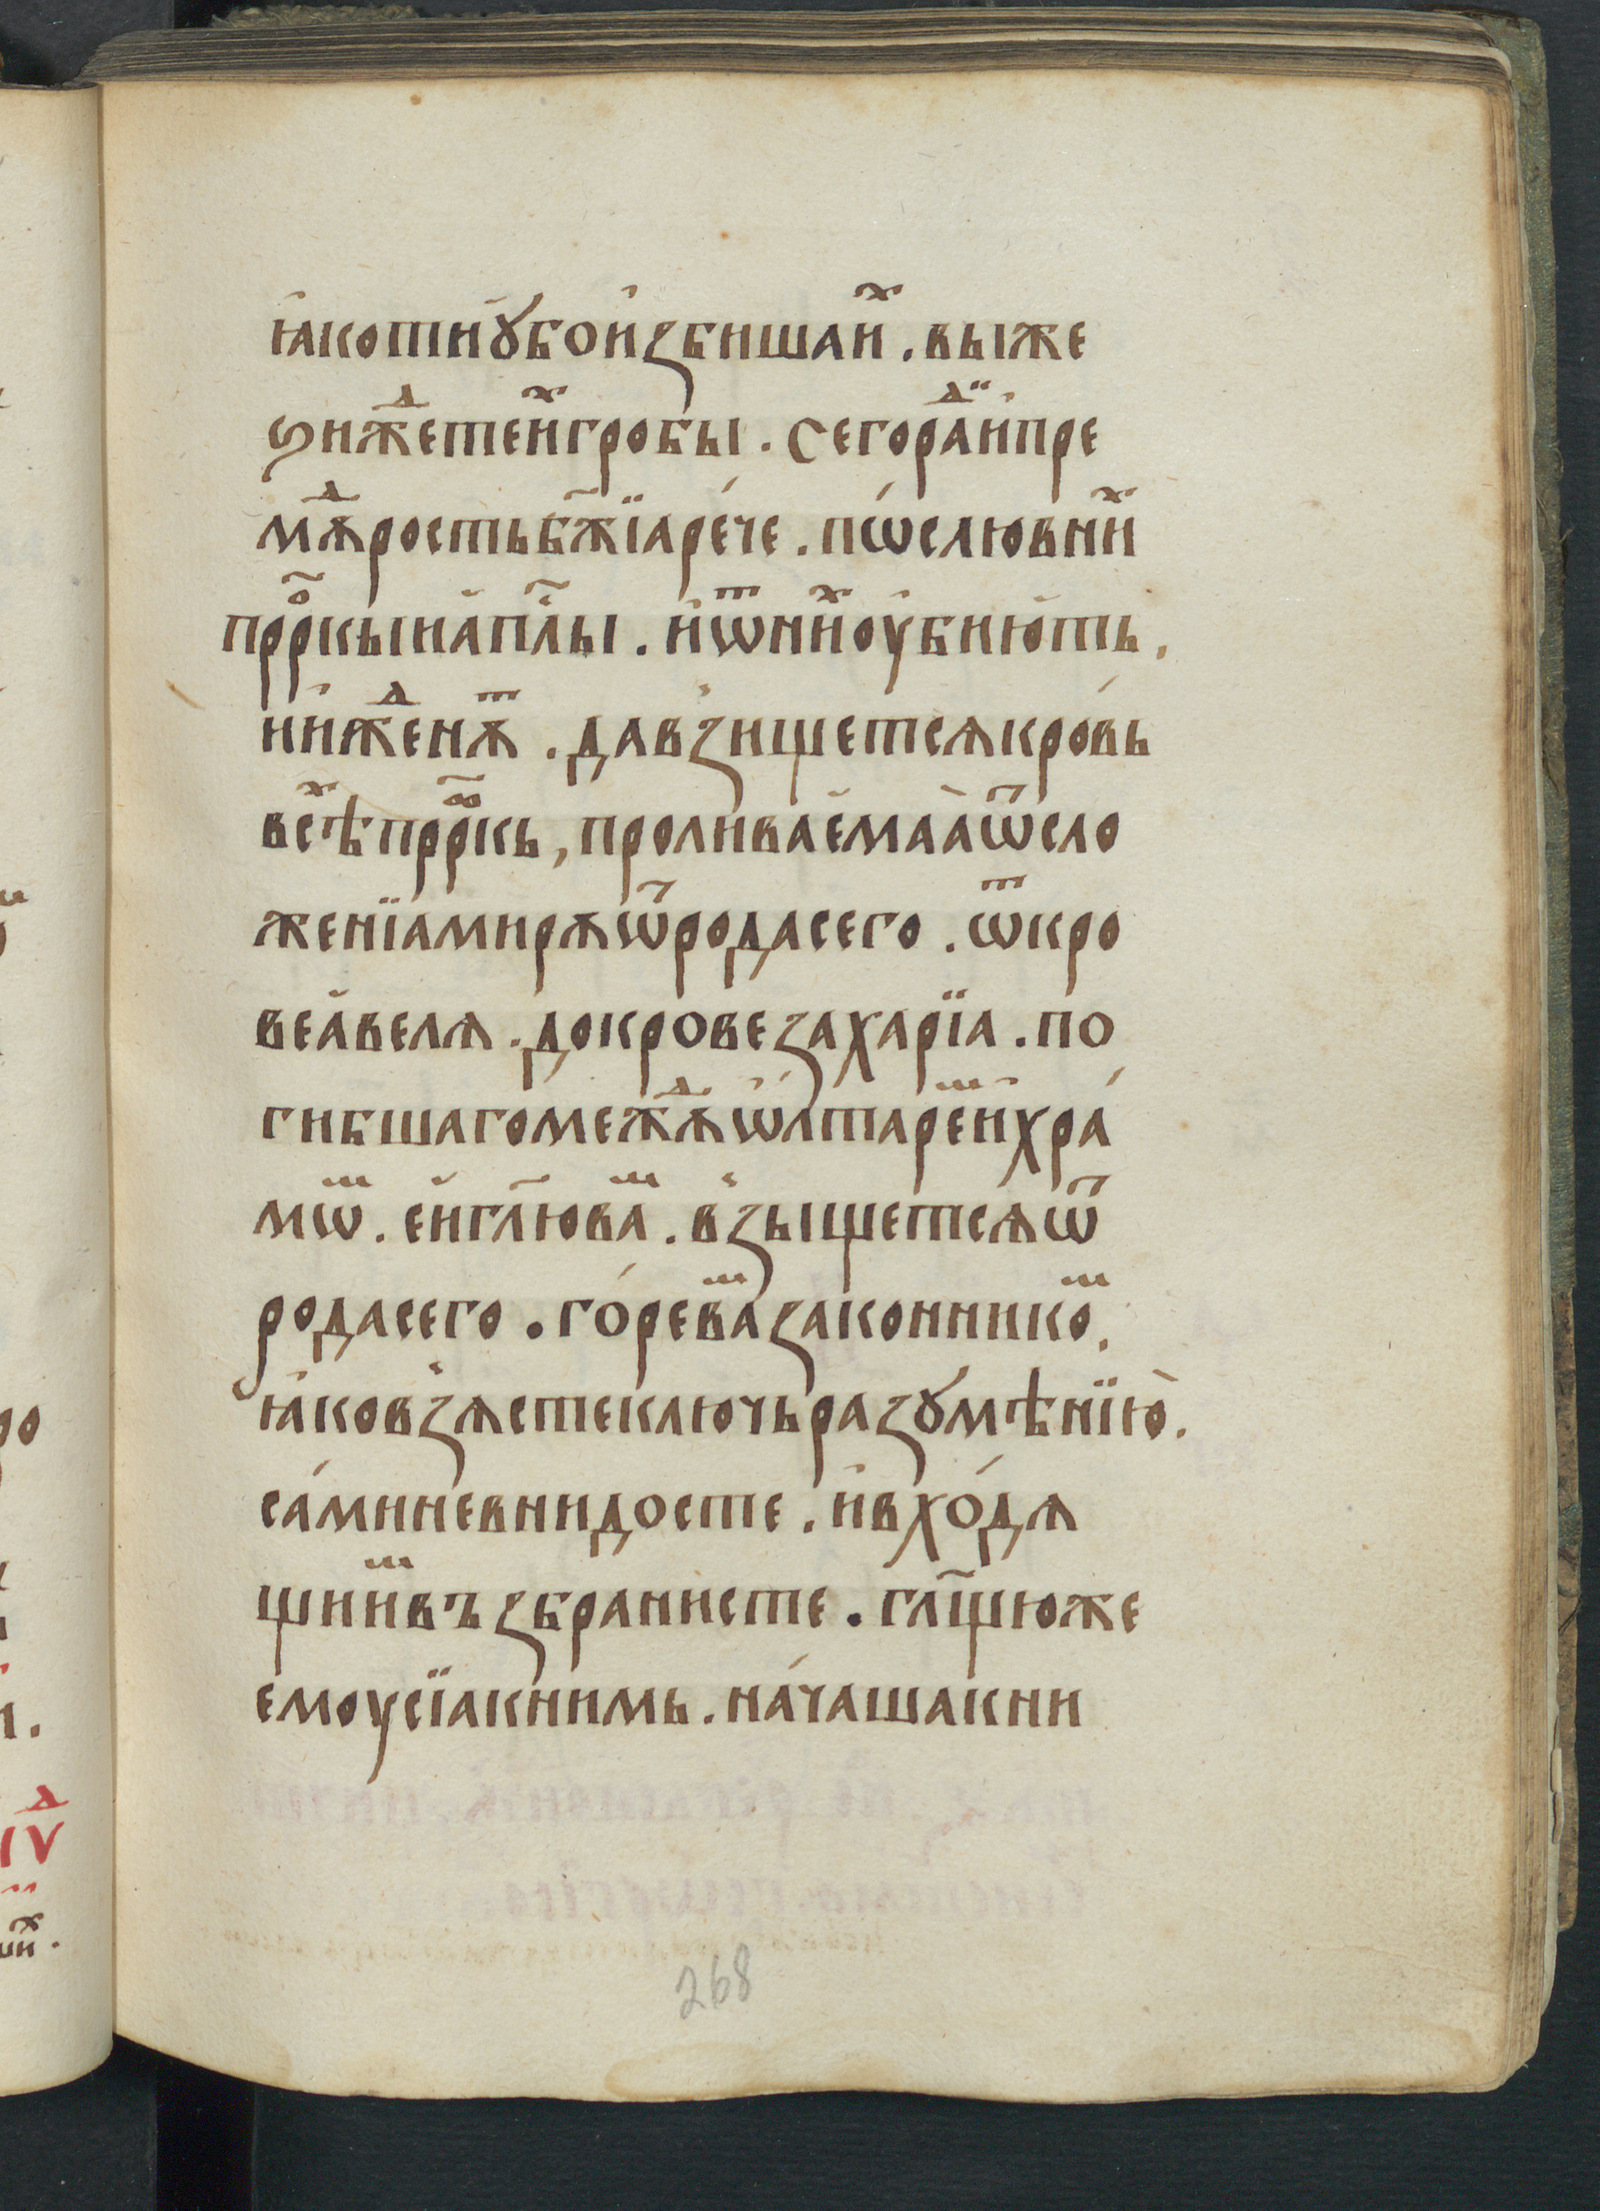 ꙗ҆котїиꙋ҆боиꙁбишаи҆ⷯ. выже
ѕижⷣетеи҆ⷯгробы. сегораⷣи҆пре
мѫⷣростьбж҃їаре́че. пѡ́слювниⷯ
прⷪ҇ркыиа҆пл҃ы. и҆ѿниⷯоу҆бию҆ть.
ии҆жⷣенѫⷮ. давꙁищетсѧкро́вь
всѣⷯпррⷪ҇кь, проливае҆маа̀ѿсло
женїамирѫѿродасего. ѿкро
веа҆велѧ. докровеꙁахарїа. по
гибшагомежⷣѫѡ҆лтареⷨи҃хра́
мѡⷨ. еи҆гл҃ювⷨа. вꙁыщетсѧѿ
родасего. го́ревⷨаꙁаконникоⷨ.
ꙗ҆ковꙁѧстеключьраꙁꙋмѣнїю̀.
са́миневнидосте. и҆вхо́дѧ
щииⷨвъꙁбранисте. гл҃щюже
емоусїакнимь. на́чашакни
268